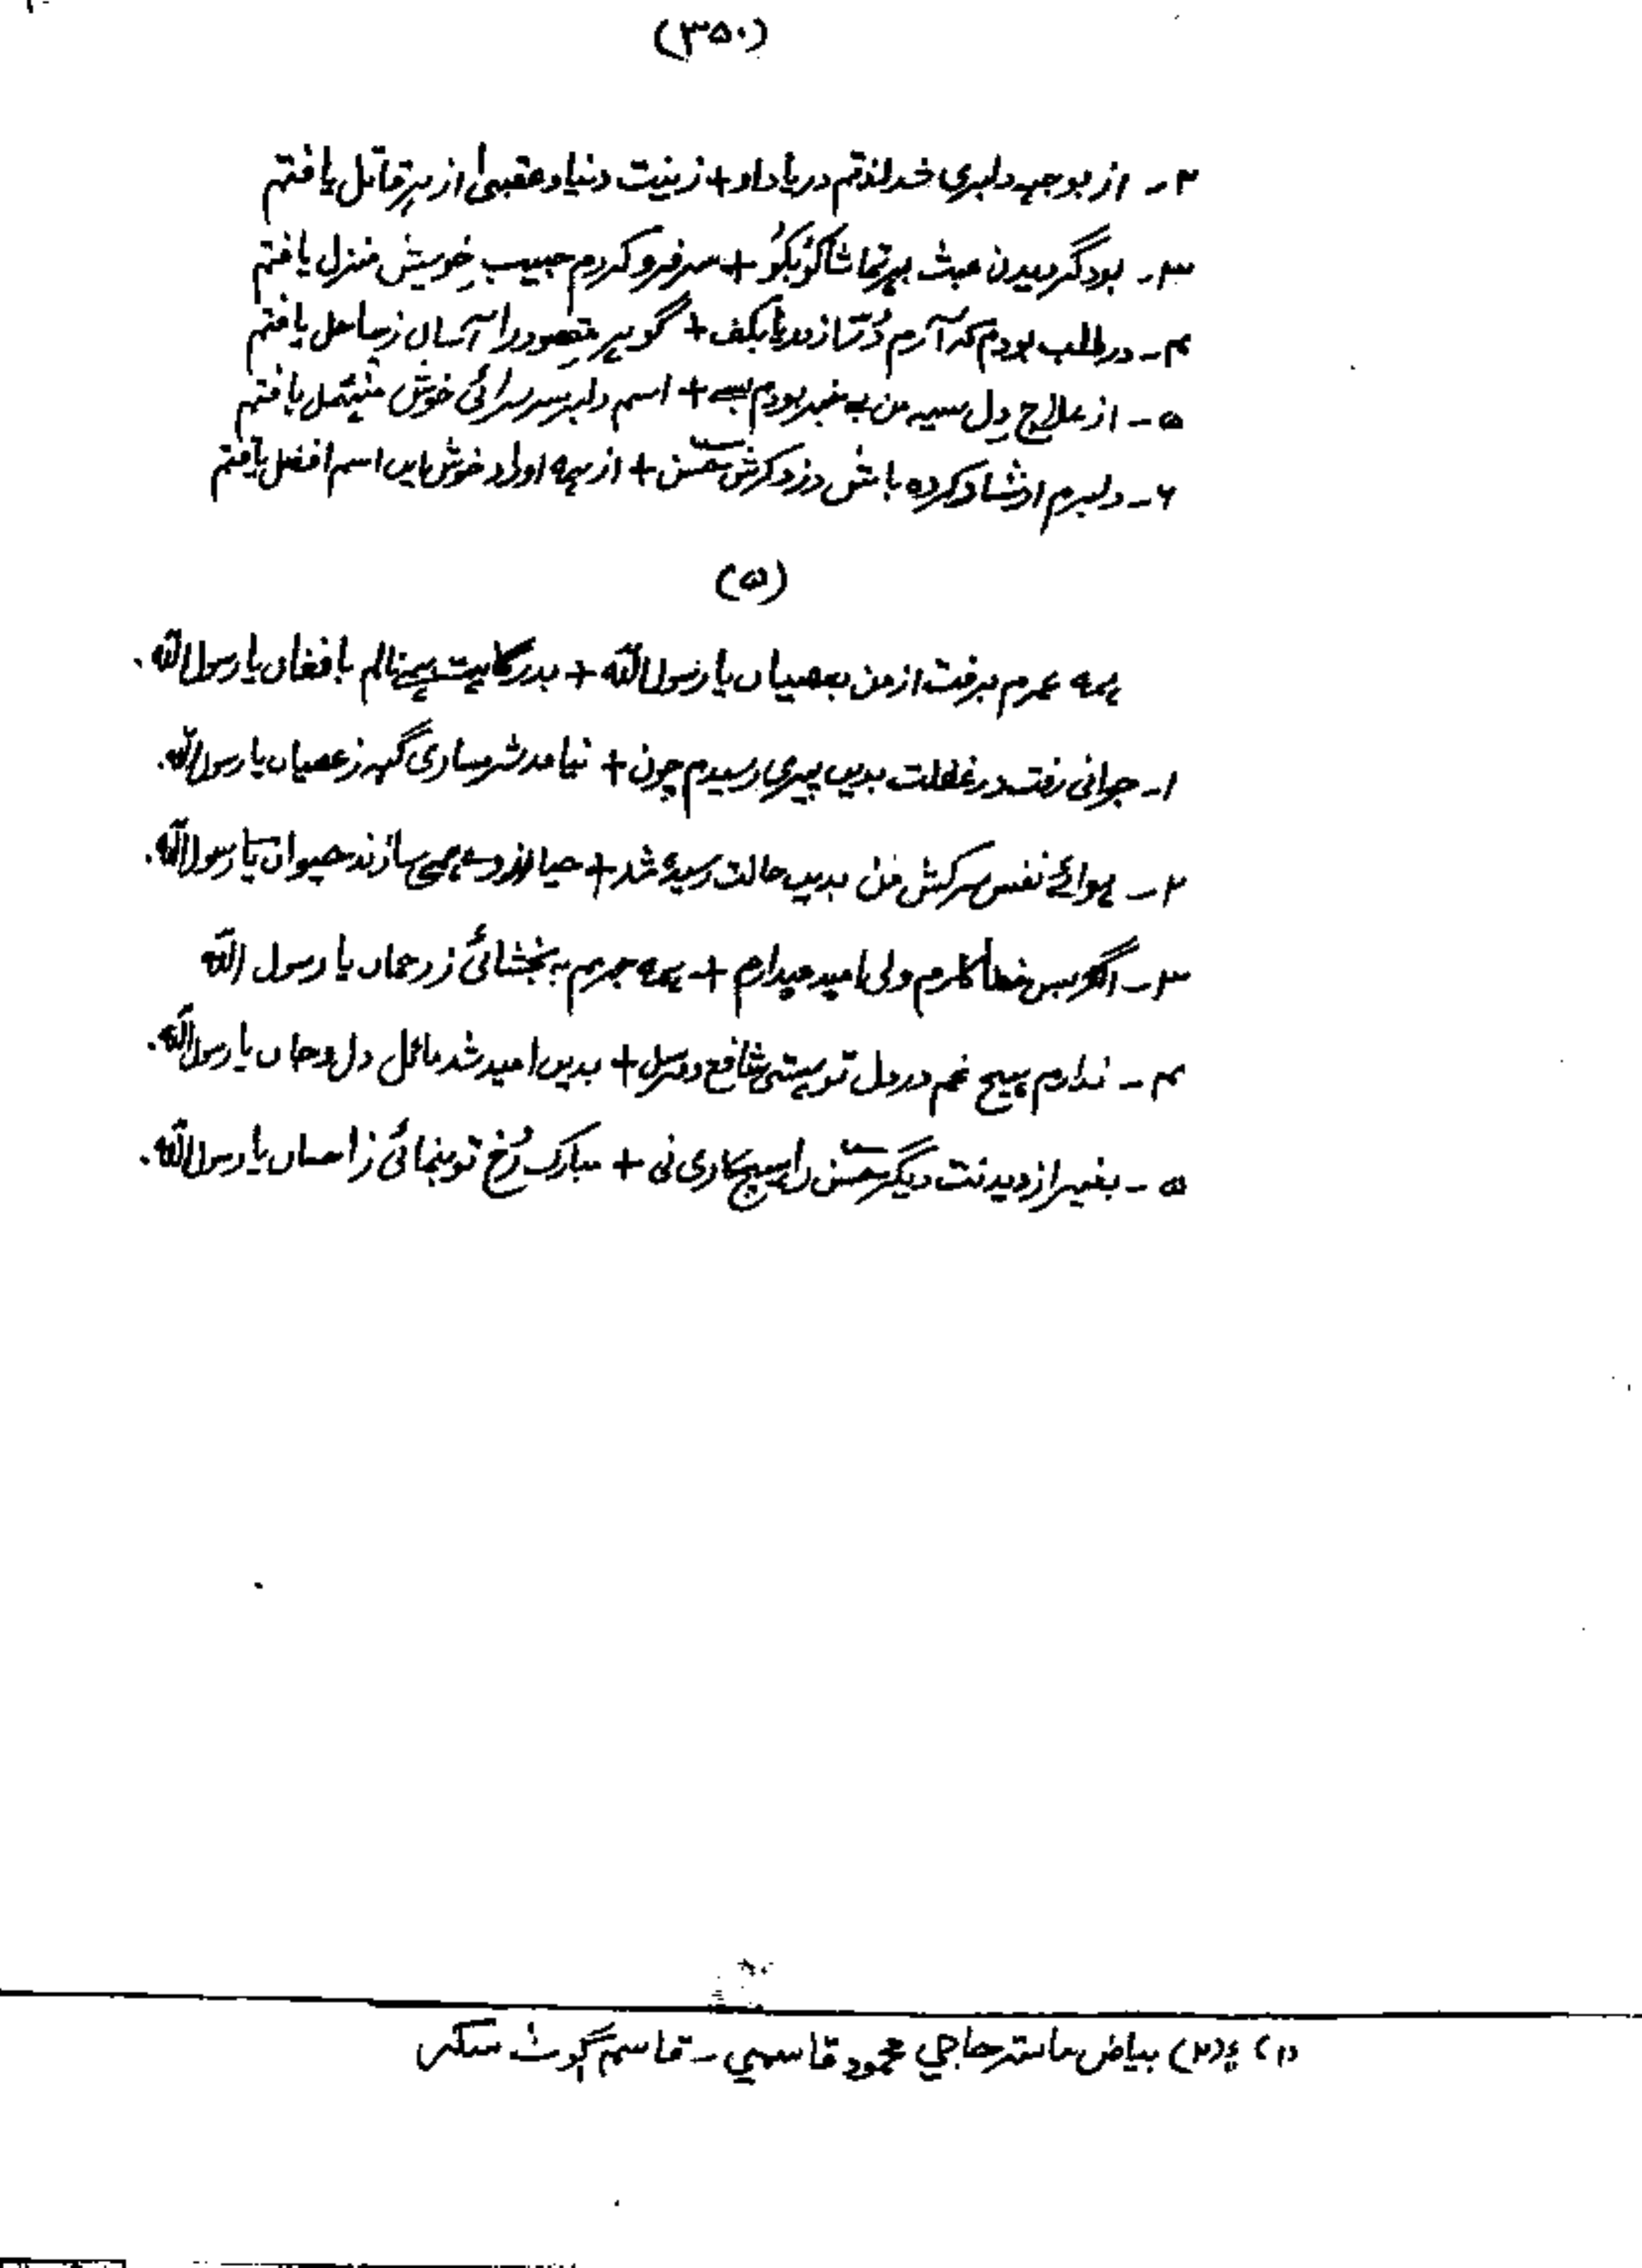 (٣٥٠)
٢- از بوجهہ دلبری خداوندتم در یاد داد + زینت دنیا و عقبیٰ از پیرِ قاتل یافتم
٣- بود گردیدن عبث بہر تماشا کو بکو + سر فرو کردم حبیبِ خویش منزل یافتم
٤- در طلب بودم کہ آرم دُر تا از دریا بکف + گوہرِ مقصود را آسان ز ساحل یافتم
٥- از علاج دل سیہ من بے خبر بودم بسے + اسم دلبر سراسر خوش یافتم
٦- دلبرم ارشاد کردہ باش در ذکرش حسن + از ہمہ اوراد خوش این اسم افضل یافتم
(٥)
ہمہ عمرم برفت از من بعصیاں یا رسول اللہ + بدرگاہت ہمی نالم با فغاں یا رسول اللہ.
١- جوانی رفت در غفلت بدیں پیری رسیدم چون + نیامد شرمساری گہہ ز عصیاں یا رسول اللہ.
٢- ہوائے نفس سرکش من بدیں حالت رسیدہ شد + حیا از وے ہمی سازند حیوان یا رسول اللہ.
٣- اگر بس خطا کارم ولی امید میدارم + ہمہ جرمم بہ بخشائی ز رحماں یا رسول اللہ
٤- ندارم ہیچ غم در دل تو ہستی شافع مرسل + بدیں امید شد مائل دل و جاں یا رسول اللہ.
٥- بغیر از دیدنت دیگر حسن را ہیچ کاری نی + مبارک رُخ تو بنمائی ز احساں یا رسول اللہ.
(١) ۽ (٢) بياض ماستر حاجي محمود قاسمي - قاسم ڳوٺ سکر